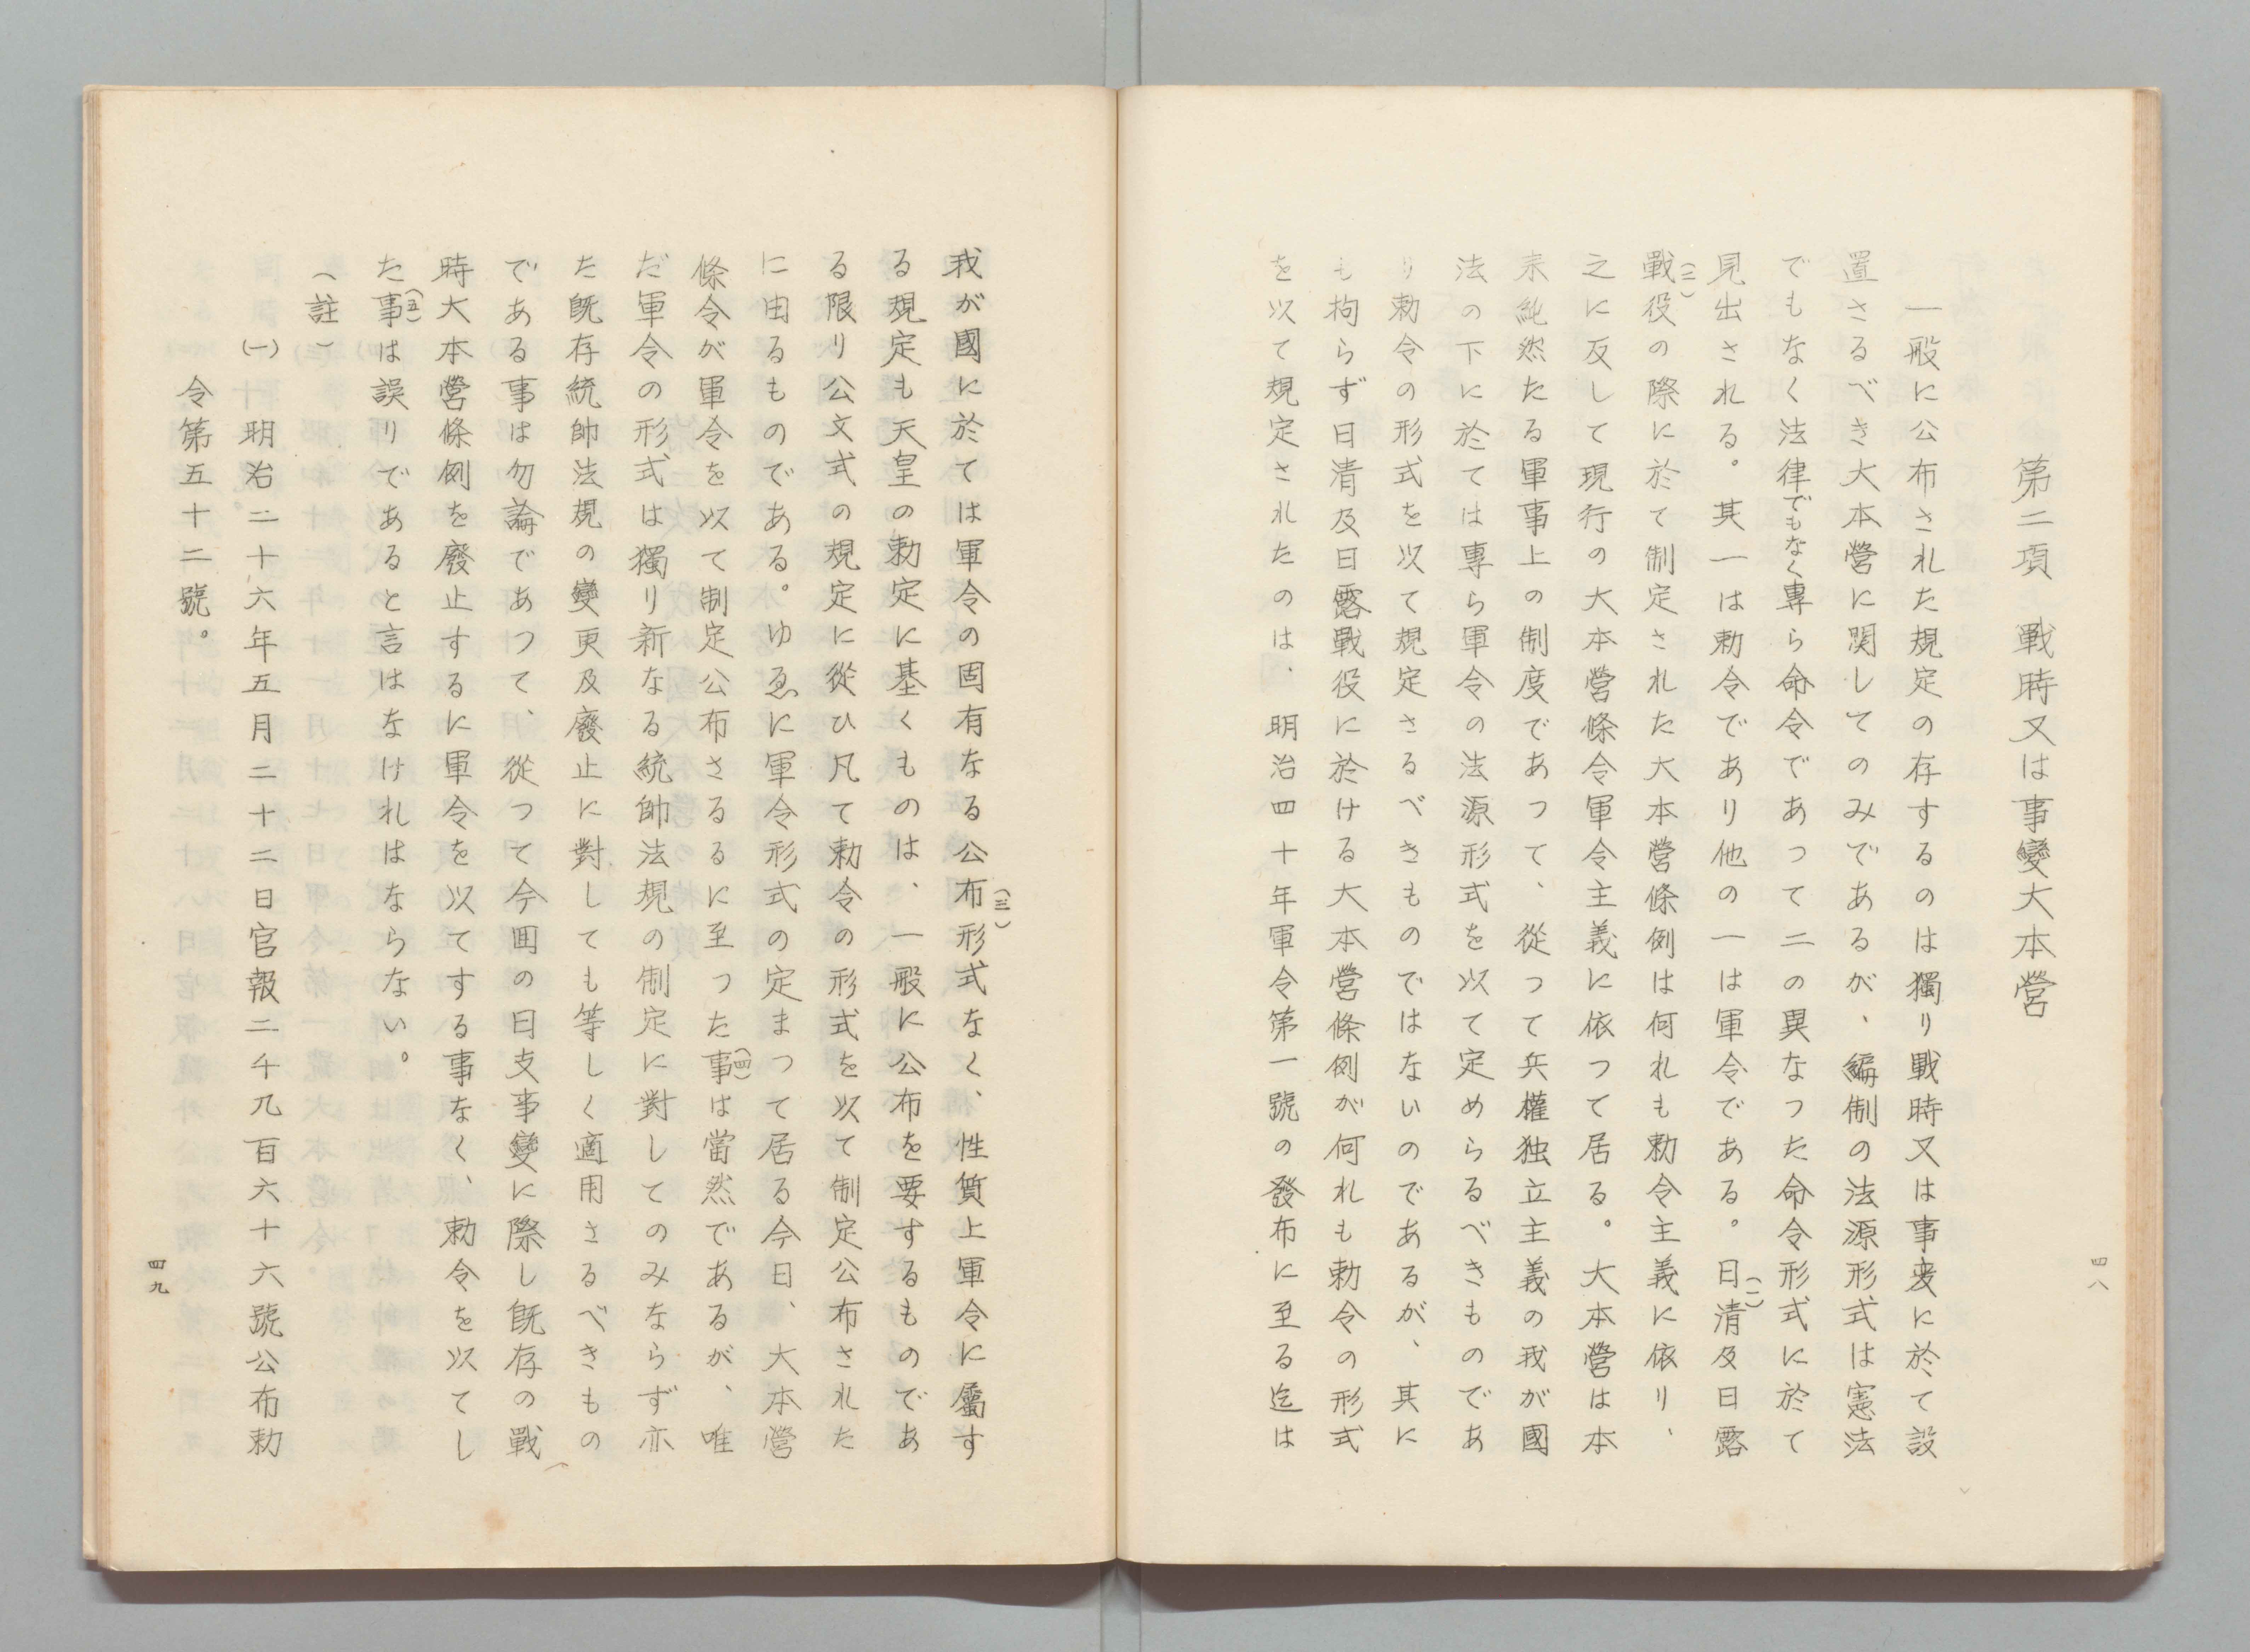 四八
第二項　戰時又は事變大本營
一般に公布された規定の存するのは獨り戰時又は事变に於て設
置さるべき大本營に関してのみであるが、編制の法源形式は憲法
でもなく法律でもなく專ら命令であつて二の異なつた命令形式に於て
見出される。其一は勅令であり他の一は軍令である。日清(一)及日露
戰役(二)の際に於て制定された大本營條例は何れも勅令主義に依り、
之に反して現行の大本營條令軍令主義に依つて居る。大本營は本
来純然たる軍事上の制度であつて、從つて兵權独立主義の我が國
法の下に於ては專ら軍令の法源形式を以て定めらるべきものであ
り勅令の形式を以て規定さるべきものではないのであるが、其に
も拘らず日清及日露戰役に於ける大本營條例が何れも勅令の形式
を以て規定されたのは、明治四十年軍令第一號の發布に至る迄は
我が國に於ては軍令の固有なる公布形式(三)なく、性質上軍令に屬す
る規定も天皇の勅定に基くものは、一般に公布を要するものであ
る限り公文式の規定に從ひ凡て勅令の形式を以て制定公布された
に由るものである。ゆゑに軍令形式の定まつて居る今日、大本營
條令が軍令を以て制定公布さるるに至つた事(四)は當然であるが、唯
だ軍令の形式は獨り新なる統帥法規の制定に對してのみならず亦
た既存統帥法規の變更及廢止に對しても等しく適用さるべきもの
である事は勿論であつて、從つて今囬の日支事變に際し既存の戰
時大本營條例を廢止するに軍令を以てする事なく、勅令を以てし
た事(五)は誤りであると言はなければならない。
(註)
(一)　明治二十六年五月二十二日官報二千九百六十六號公布勅
令第五十二號。
四九